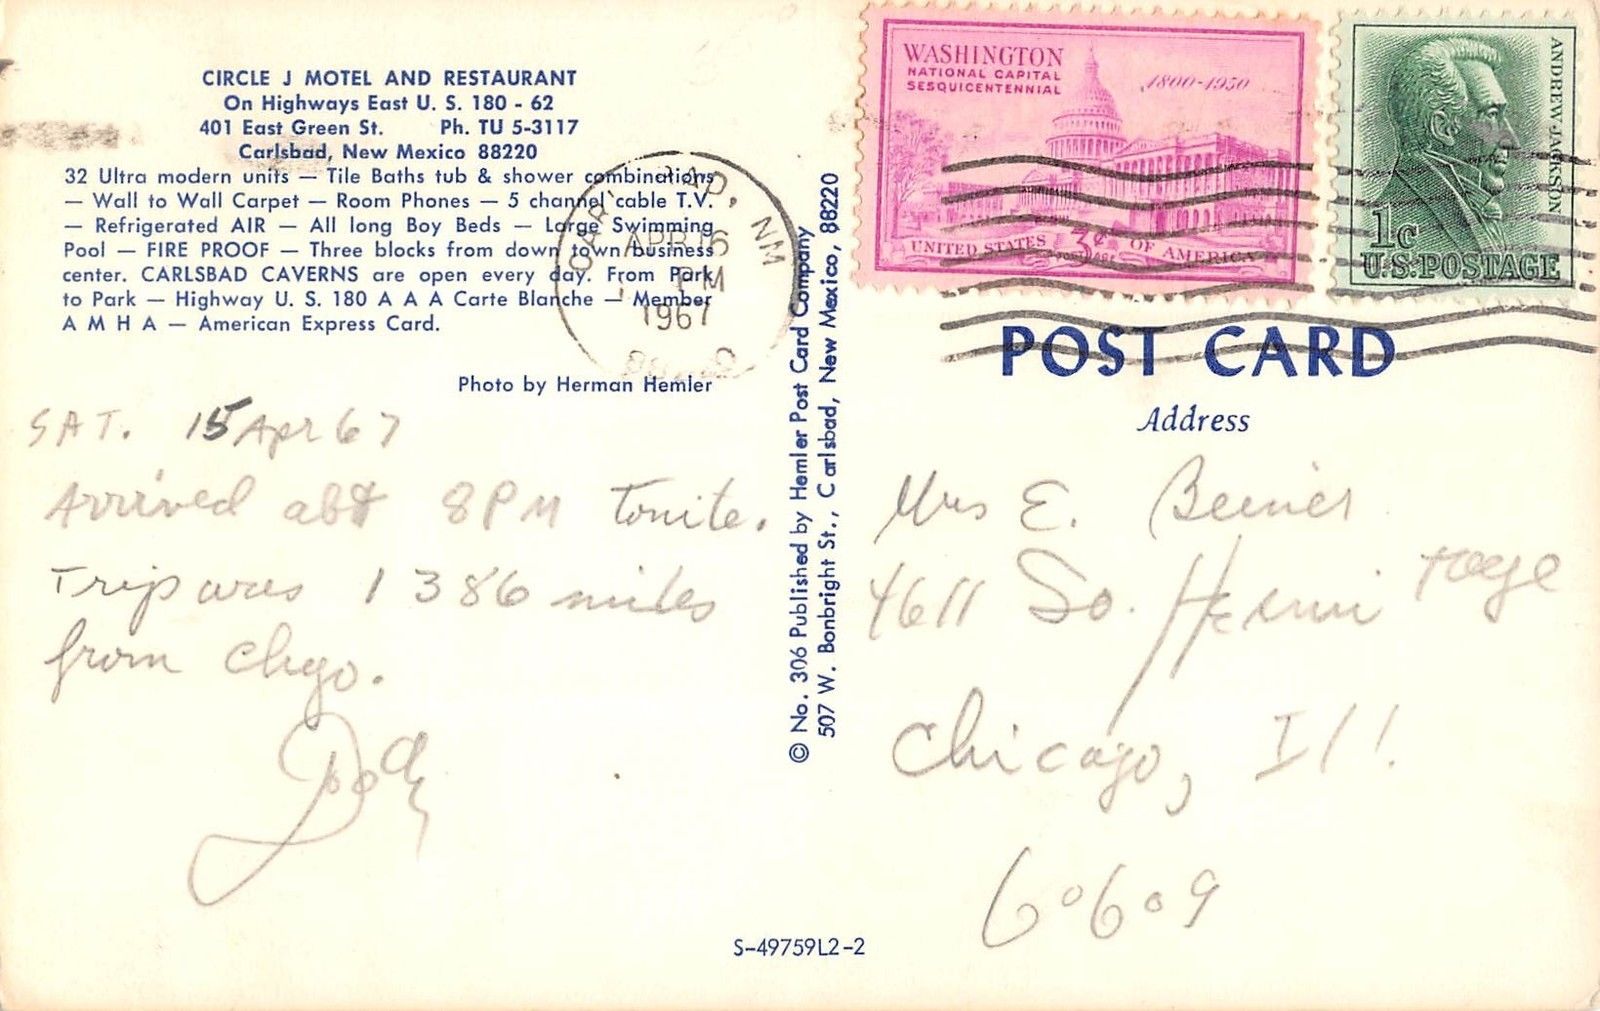 CIRCLE J MOTEL AND RESTAURANT
On Highways East U. S. 180 - 62
401 East Green St. Ph. TU 5-3117
Carlsbad, New Mexico 88220
32 Ultra modern units — Tile Baths tub & shower combinations
— Wall to Wall Carpet — Room Phones — 5 channel cable T.V.
— Refrigerated AIR — All long Boy Beds — Large Swimming
Pool — FIRE PROOF — Three blocks from down town business
center. CARLSBAD CAVERNS are open every day. From Park
to Park — Highway U. S. 180 A A A Carte Blanche — Member
A M H A — American Express Card.
Photo by Herman Hemler
SAT. 15 Apr 67
Arrived abt 8 PM Tonite.
Trip was 1386 miles
from Chgo.
NM
APR 16
PM
1967
© No. 306 Published by Hemler Post Card Company
507 W. Bonbright St., Carlsbad, New Mexico, 88220
WASHINGTON
NATIONAL CAPITAL
SESQUICENTENNIAL
1800-1950
3¢
UNITED STATES OF AMERICA
ANDREW JACKSON
1c
U.S. POSTAGE
POST CARD
Address
Mrs E.
4611 So.
Chicago, Ill.
60609
S-49759L2-2